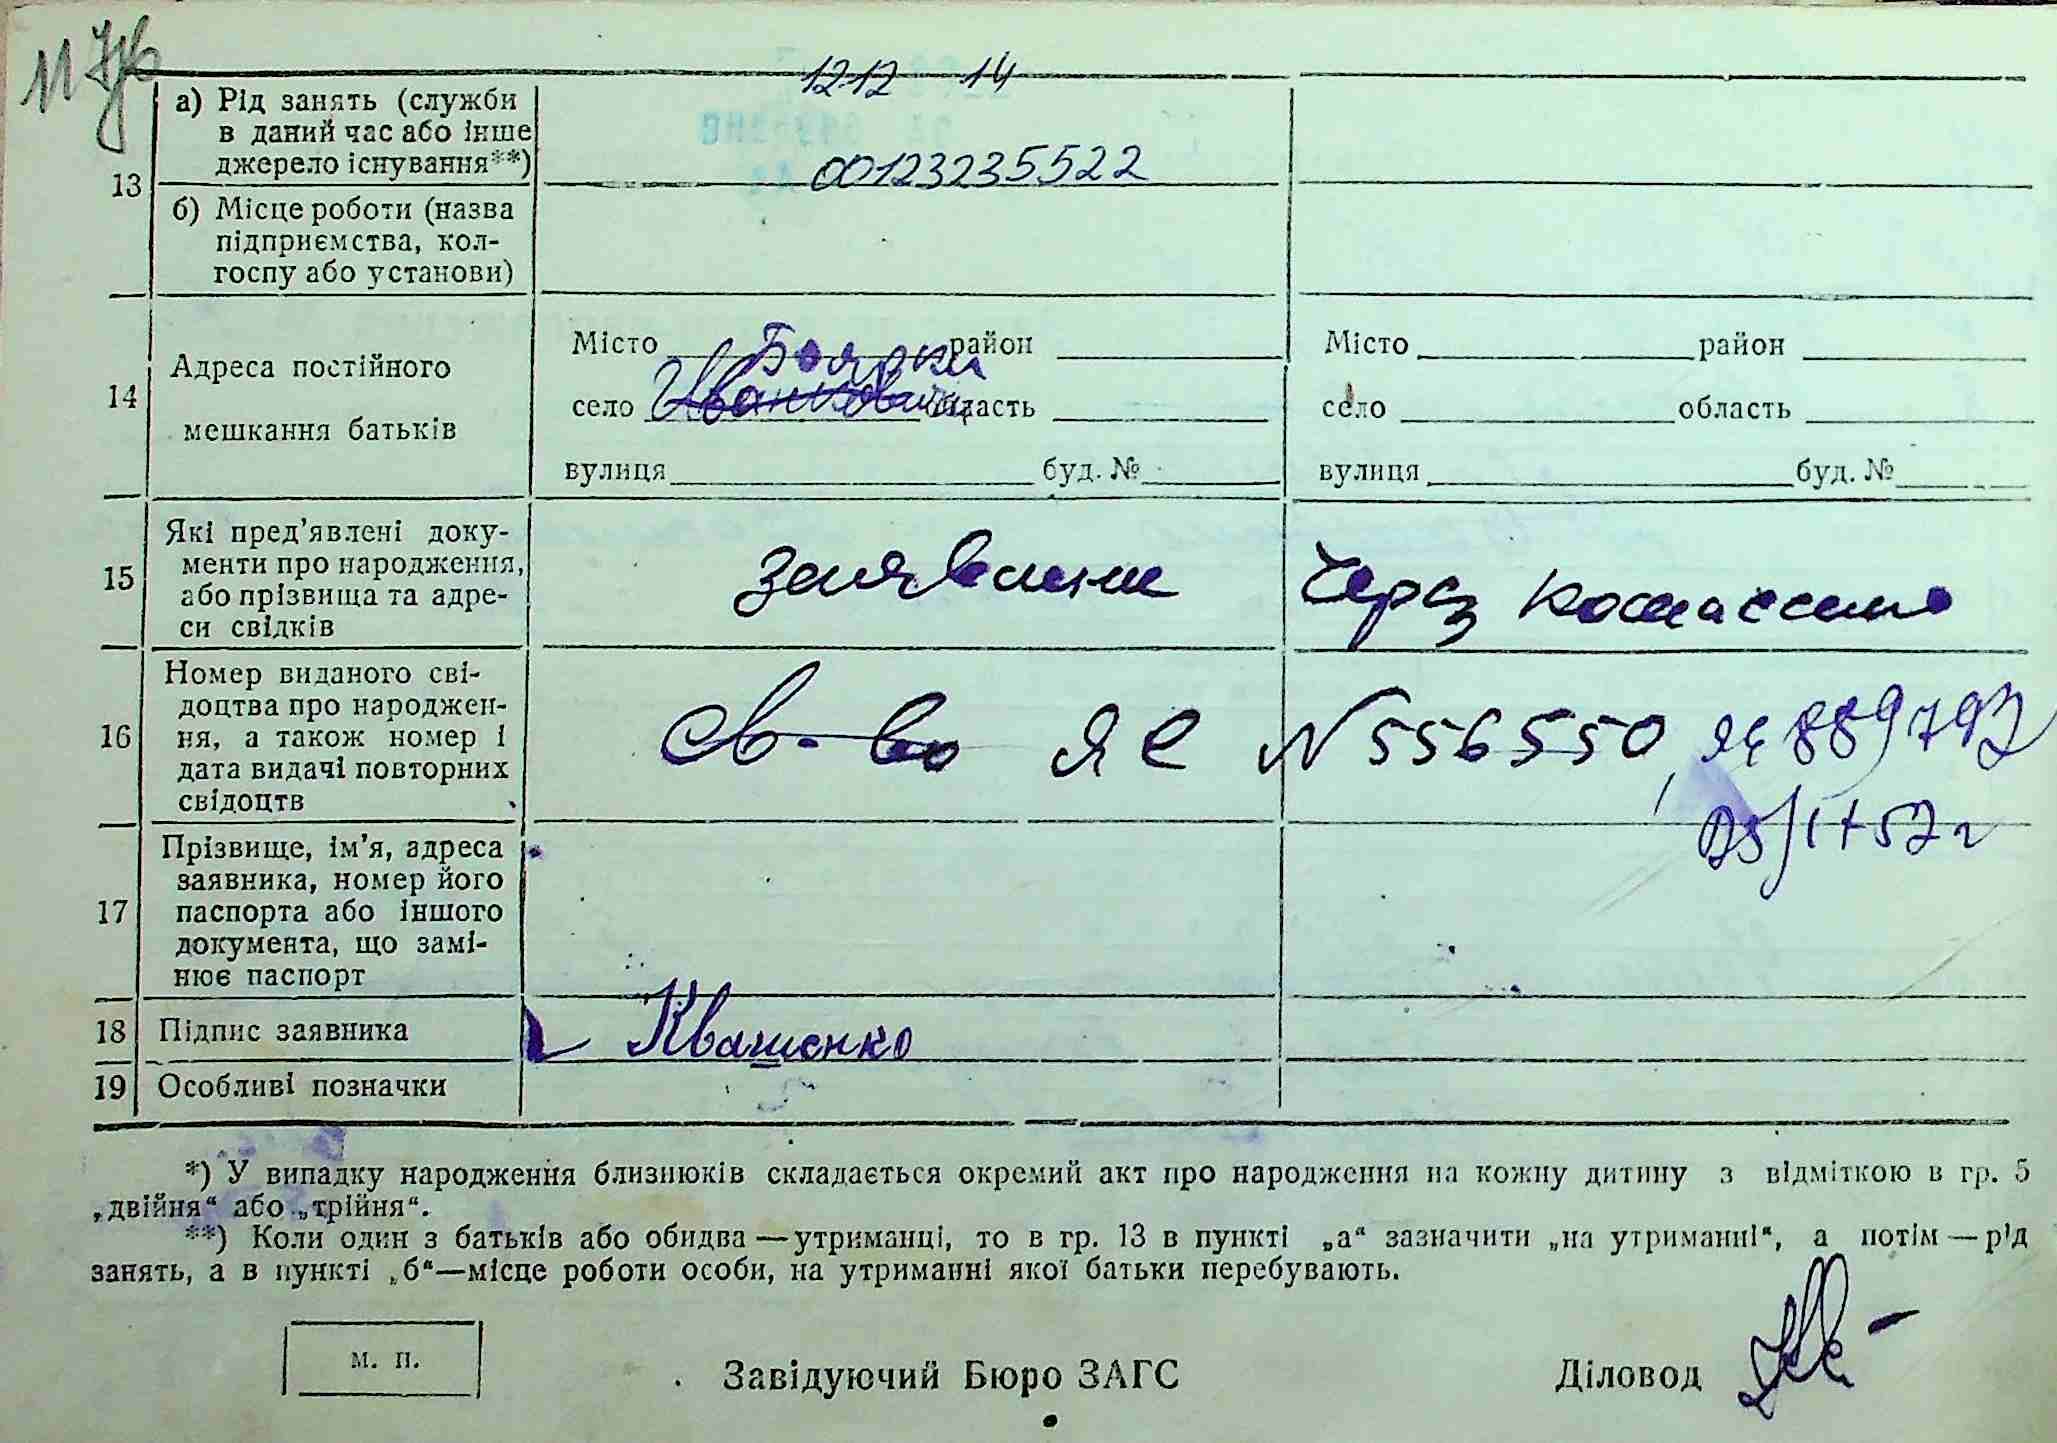 12 12 14
а) Рід занять (служби
в даний час або інше
джерело існування**)
00123235522
13
б) Місце роботи (назва
підприємства, кол-
госпу або установи)
14
Адреса постійного
мешкання батьків
Місто Боярка район
село область
вулиця буд. №
Місто район
село область
вулиця буд. №
15
Які пред’явлені доку-
менти про народження,
або прізвища та адре-
си свідків
Через
16
Номер виданого сві-
доцтва про народжен-
ня, а також номер і
дата видачі повторних
свідоцтв
Св-во ЯЕ N 556550, ЯЄ 889793
17
Прізвище, ім’я, адреса
заявника, номер його
паспорта або іншого
документа, що замі-
нює паспорт
18 Підпис заявника Квашенко
19 Особливі позначки
*) У випадку народження близнюків складається окремий акт про народження на кожну дитину з відміткою в гр. 5
„двійня“ або „трійня“.
**) Коли один з батьків або обидва—утриманці, то в гр. 13 в пункті „а“ зазначити „на утриманні“, а потім—рід
занять, а в пункті „б“—місце роботи особи, на утриманні якої батьки перебувають.
м. п.
Завідуючий Бюро ЗАГС Діловод